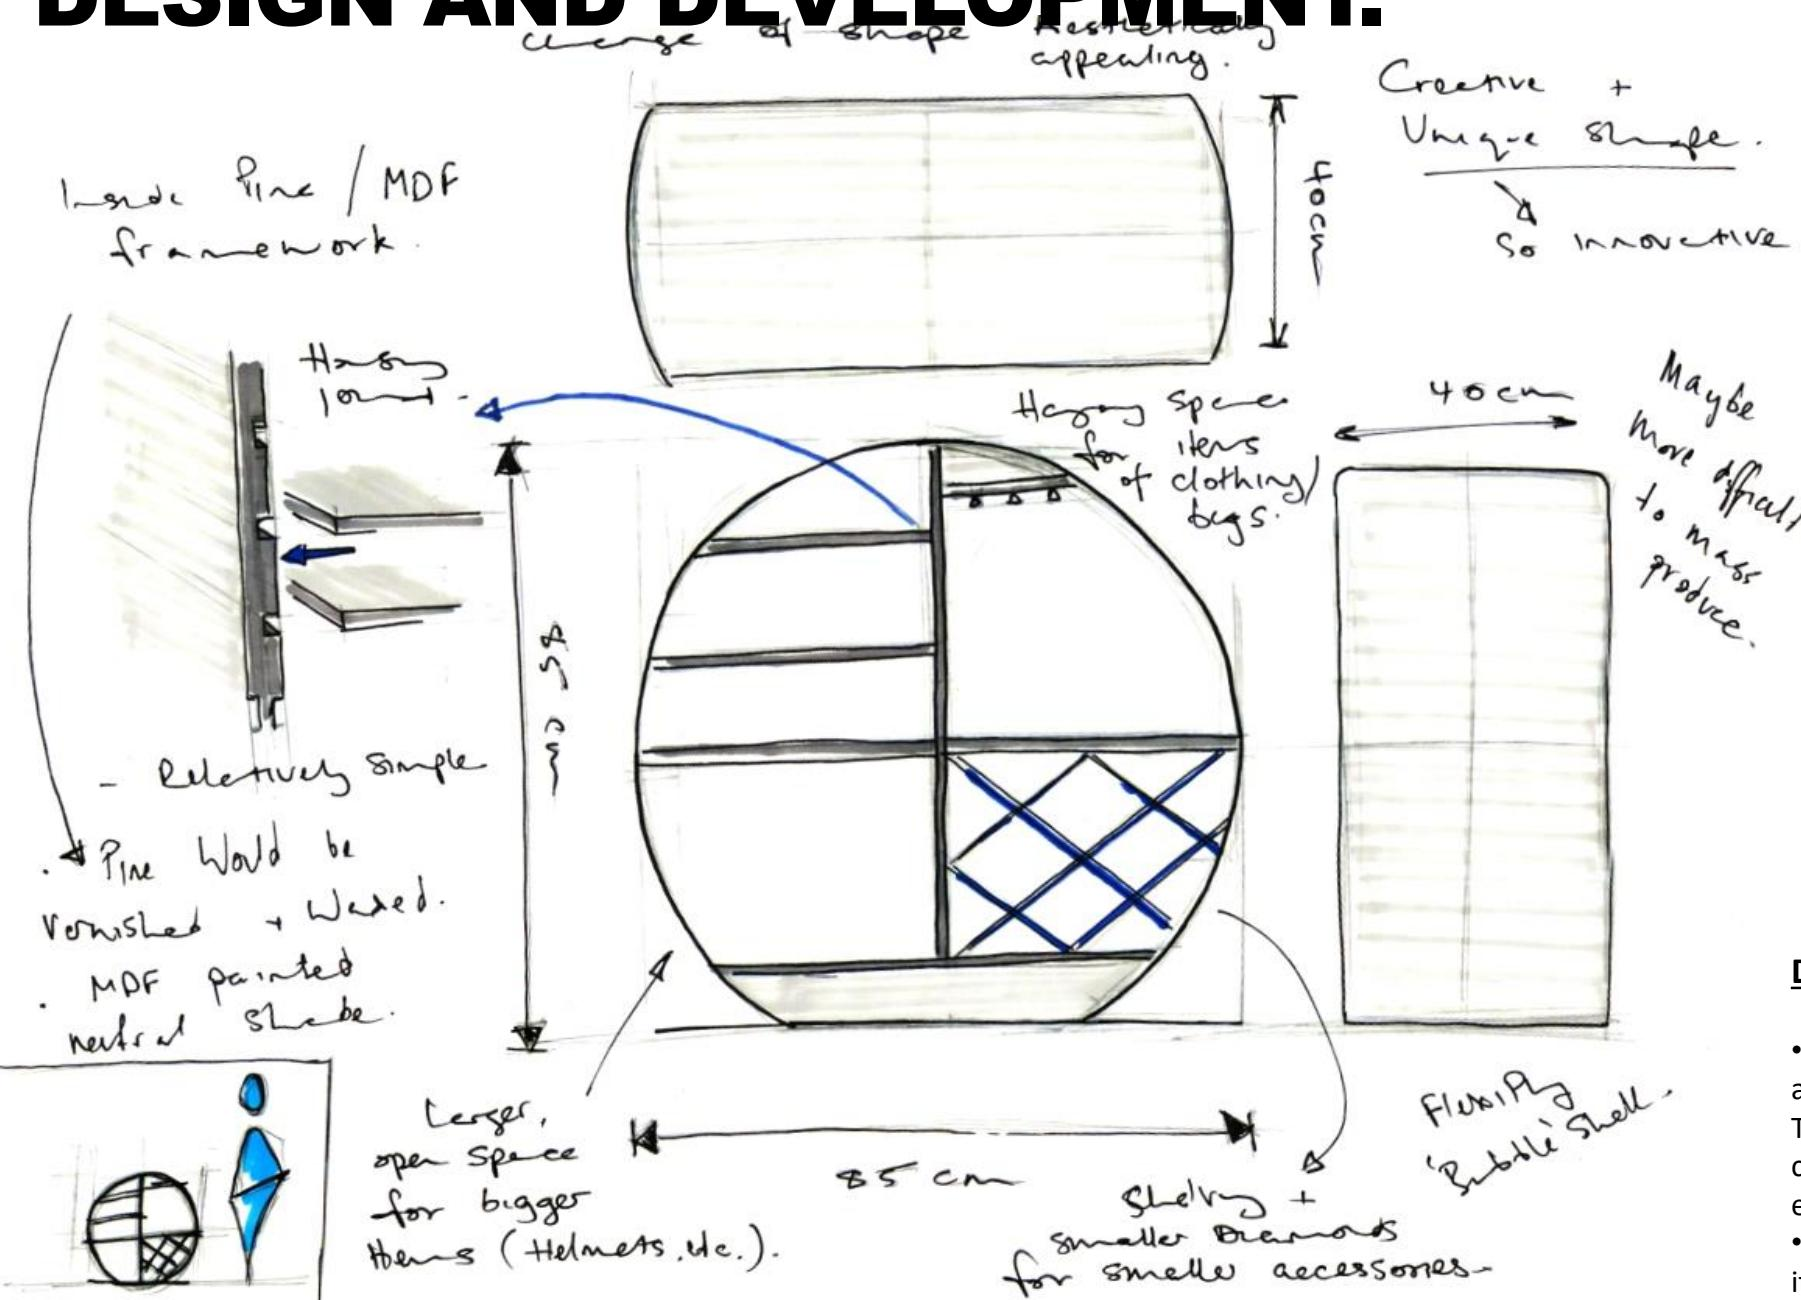 DESIGN AND DEVELOPMENT.
Change of shape Aesthetically
appealing.
Creative +
Unique Shape.
So innovative
Inside Pine / MDF
framework.
40cm
Housing
joint -
Hanging Space
for items
of clothing/
bags.
40cm
Maybe
more difficult
to mass
produce.
85 cm
- Relatively simple
• Pine Would be
Varnished + Waxed.
• MDF painted
neutral Shade.
Larger,
open space
for bigger
items (Helmets, etc.).
85 cm
Shelving +
smaller Diamonds
for smaller accessories.
Flexiply
'Bubble' Shell.
D
•
a
T
e
•